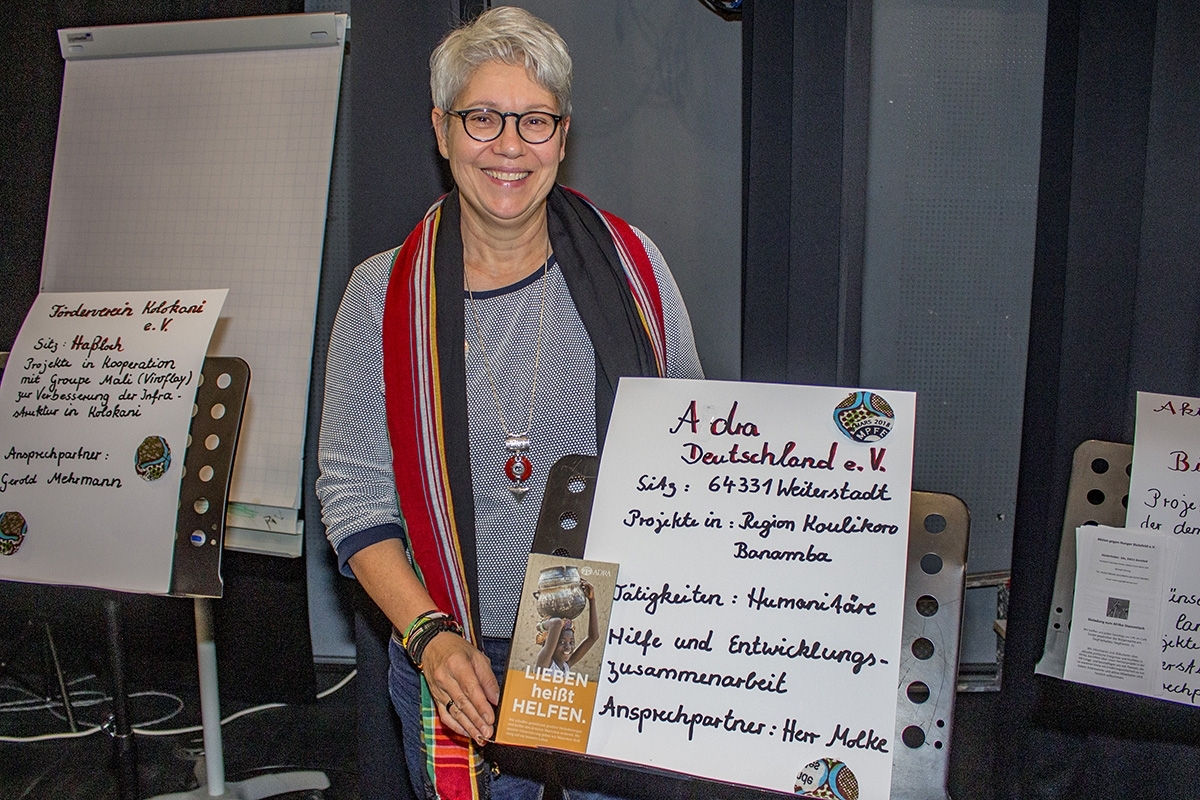 Förderverein Kolokani
e.V.
Sitz: Haßloch
Projekte in Kooperation
mit Groupe Mali (Viroflay)
zur Verbesserung der Infra-
struktur in Kolokani
Ansprechpartner:
Gerold Mehrmann
ADRA
LIEBEN
heißt
HELFEN.
Adra
Deutschland e.V.
MARS 2018
MPFE
Sitz: 64331 Weiterstadt
Projekte in: Region Koulikoro
Banamba
Tätigkeiten: Humanitäre
Hilfe und Entwicklungs-
zusammenarbeit
Ansprechpartner: Herr Molke
Ak
Bi
Proje
der dem